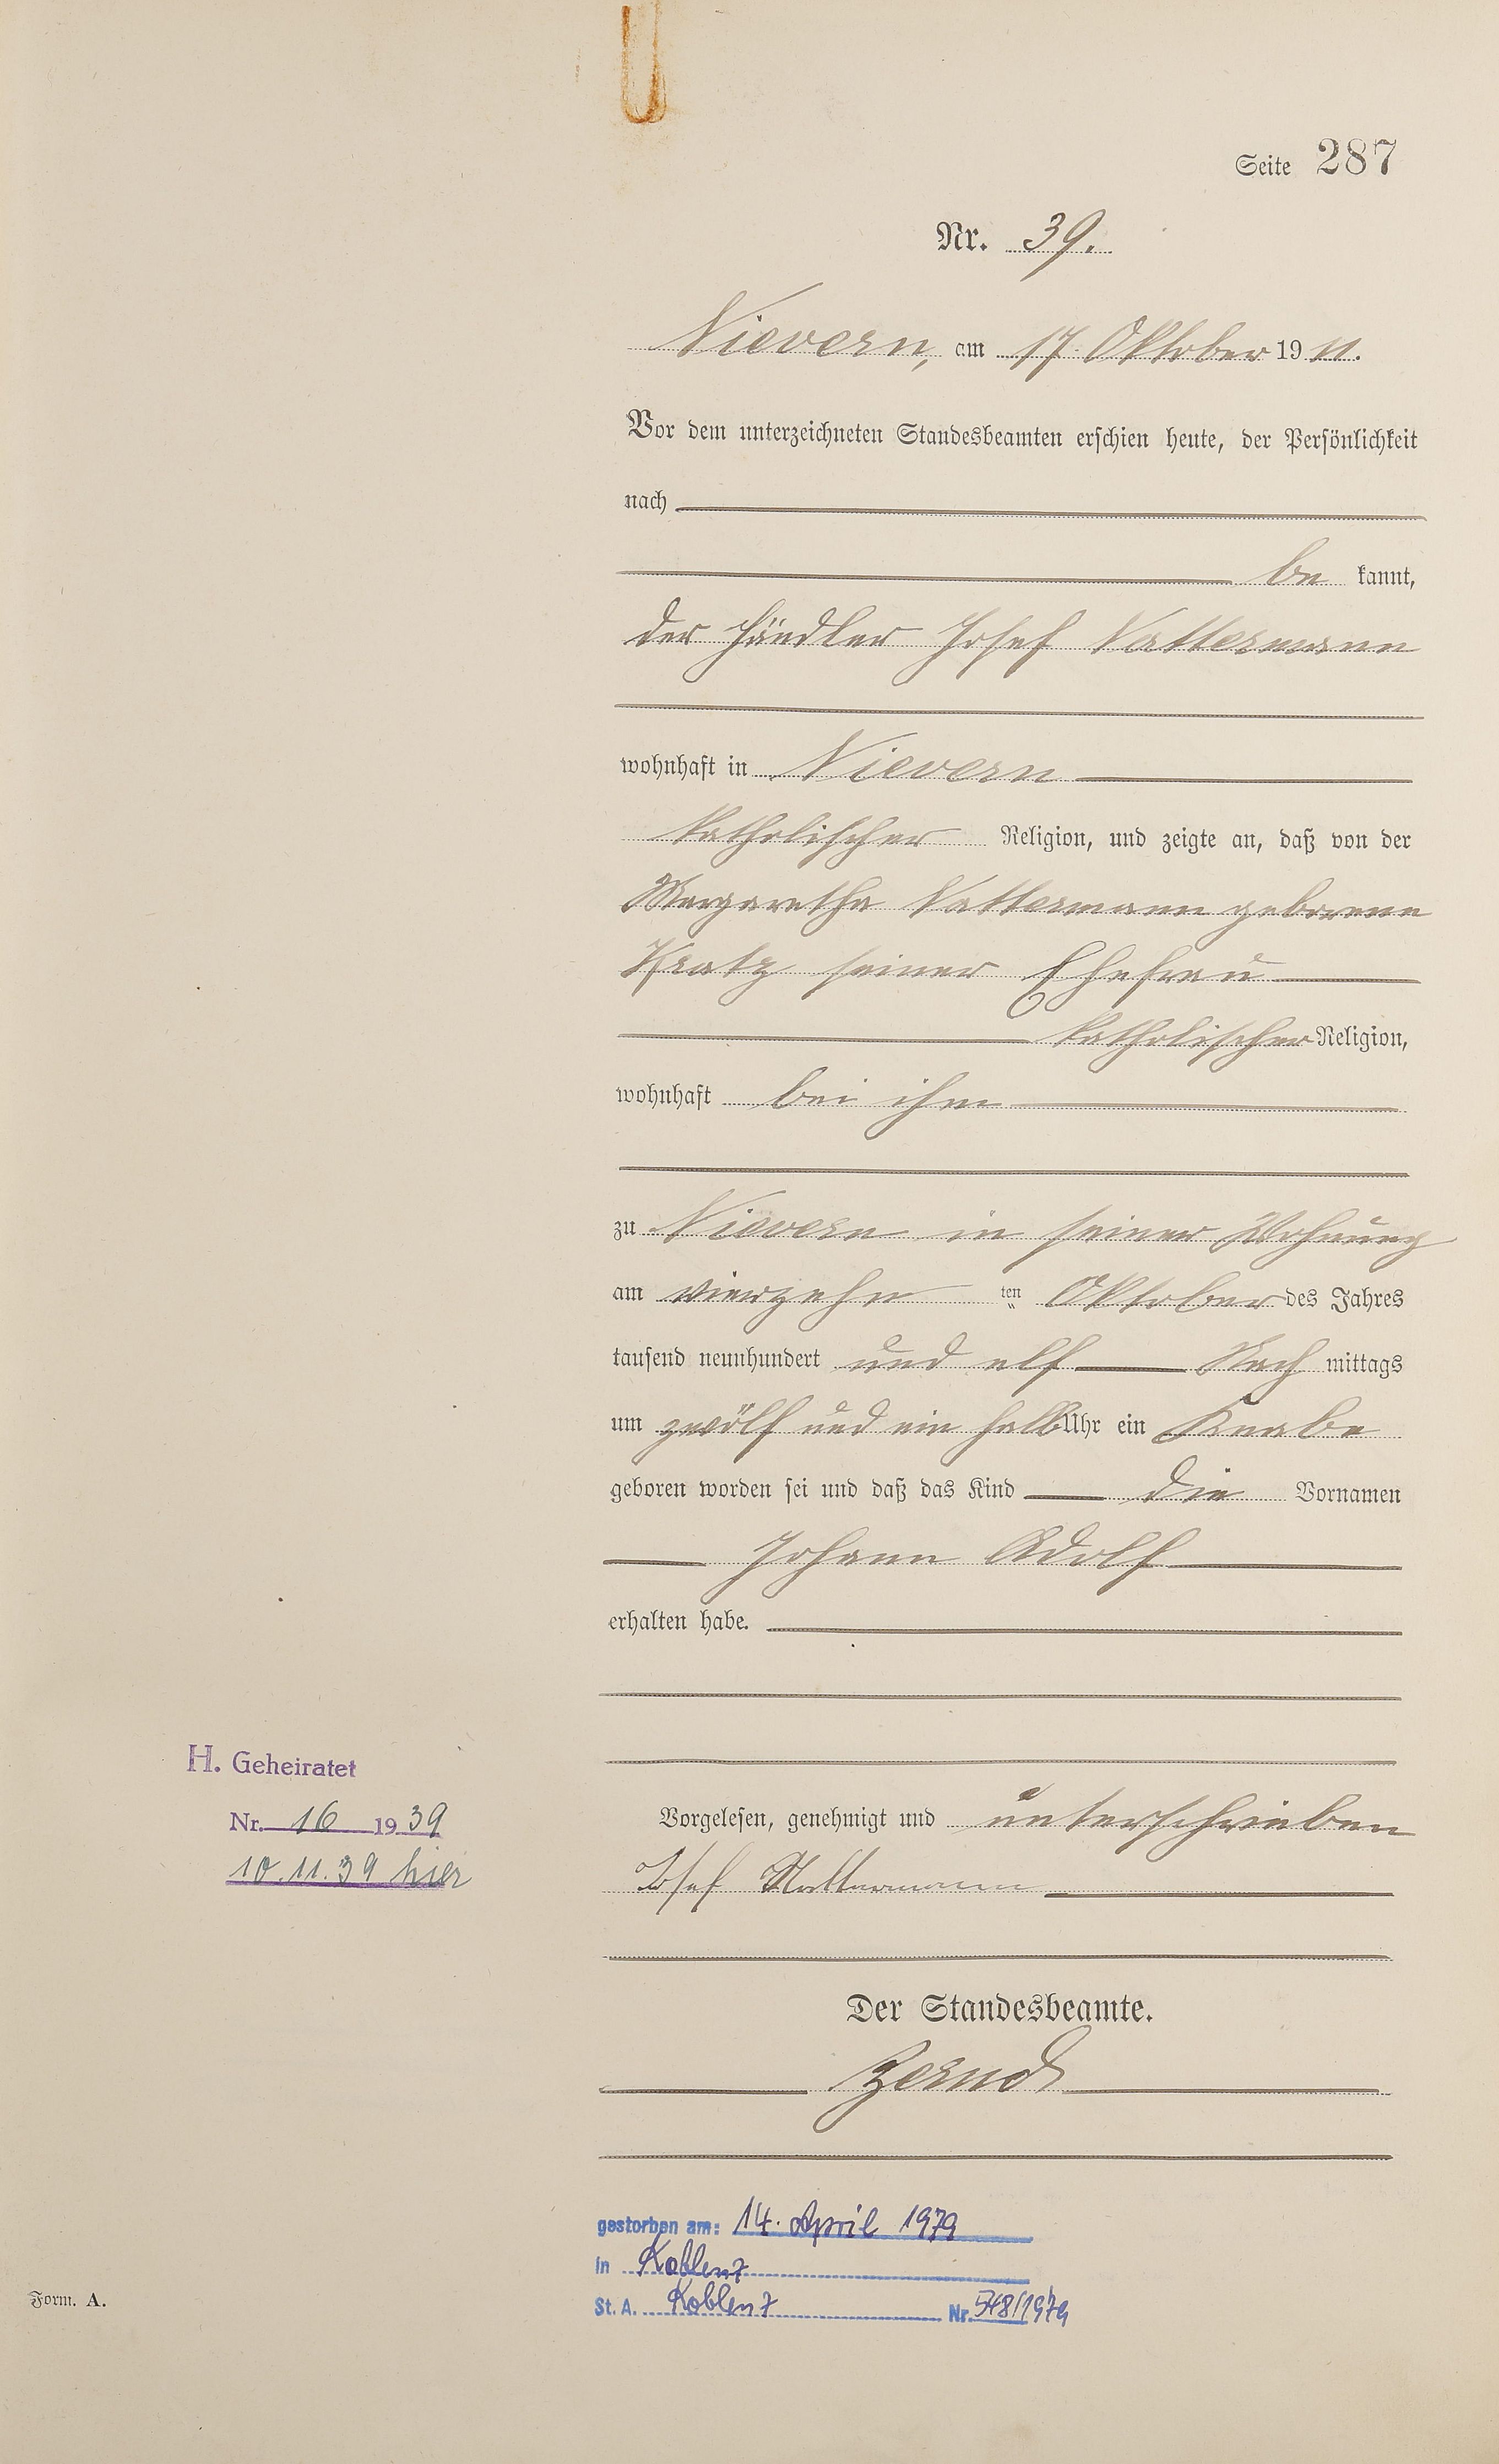 Seite 287
Nr. 39.
Nievern, am 17. Oktober 19 11.
Vor dem unterzeichneten Standesbeamten erschien heute, der Persönlichkeit
nach
be kannt,
der Händler Josef Nattermann
wohnhaft in Nievern
katholischer Religion, und zeigte an, daß von der
Margaretha Nattermann geborene
Kratz seiner Ehefrau
katholischer Religion,
wohnhaft bei ihm
zu Nievern in seiner Wohnung
am vierzehn ten Oktober des Jahres
tausend neunhundert und elf Nach mittags
um zwölf und ein halb Uhr ein Knabe
geboren worden sei und daß das Kind die Vornamen
Johann Adolf
erhalten habe.
H. Geheiratet
Nr. 16 1939
10.11.39 hier
Vorgelesen, genehmigt und unterschrieben
Josef Nattermann
Der Standesbeamte.
gestorben am: 14. April 1979
in Koblenz
St. A. Koblenz Nr. 548/1979
Form. A.